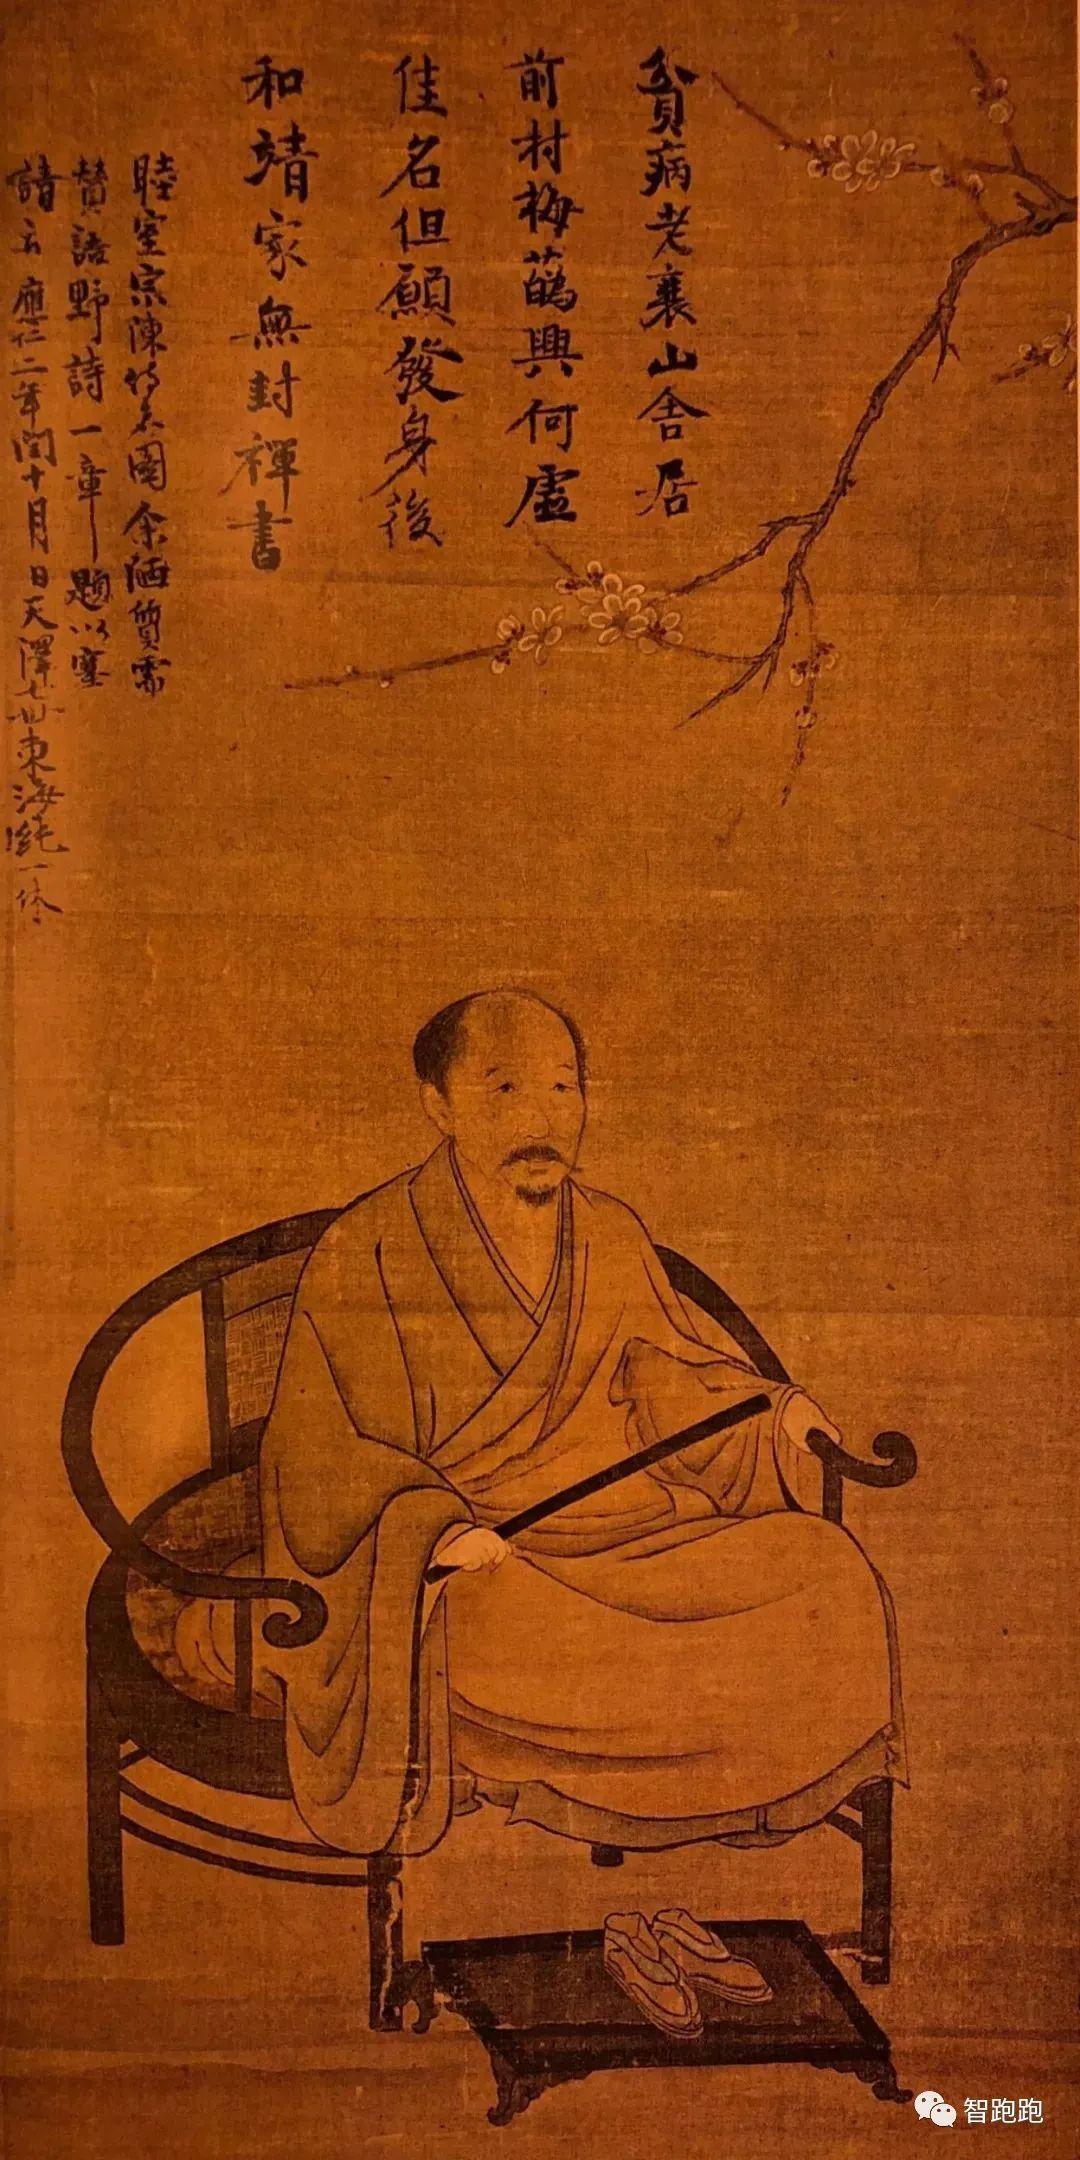 貧病老襄山舍居
前村梅蘤興何虚
佳名但願發身後
和靖家無封禪書
睦室宗陳侍者圖余陋質需
賛語野詩一章題以塞
請云應仁二年閏十月日天澤七世東海純一休
智跑跑